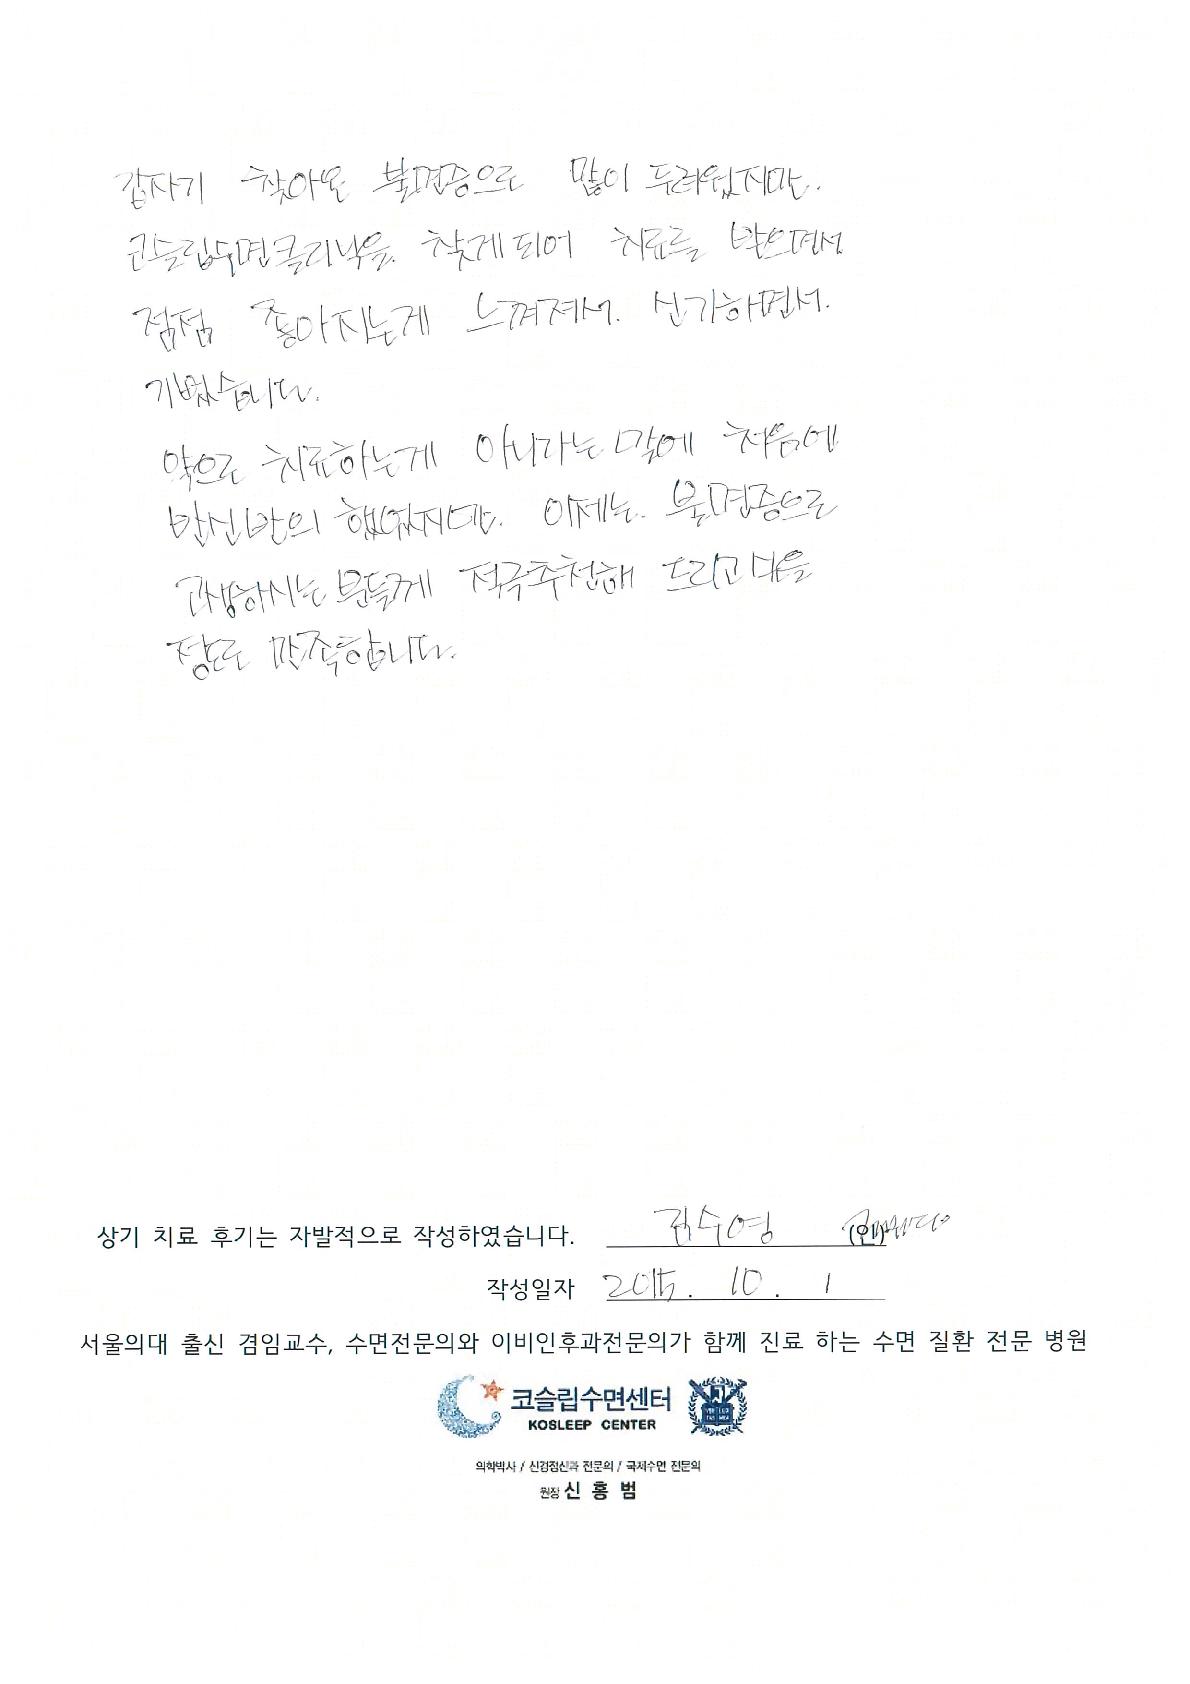 갑자기 찾아온 불면증으로 많이 두려웠지만.
코슬립수면클리닉을. 찾게되어 치료를 받으면서
점점 좋아지는게 느껴져서. 신기하면서.
기뻤습니다.
약으로 치료하는게 아니라는 말에 처음에
반신반의 했었지만. 이제는. 불면증으로
고생하시는 분들께 적극추천해 드리고 싶을
정도로 만족합니다.
상기 치료 후기는 자발적으로 작성하였습니다. 김수영 (인)
작성일자 2015. 10. 1
서울의대 출신 겸임교수, 수면전문의와 이비인후과전문의가 함께 진료 하는 수면 질환 전문 병원
코슬립수면센터
KOSLEEP CENTER
의학박사 / 신경정신과 전문의 / 국제수면 전문의
원장 신 홍 범